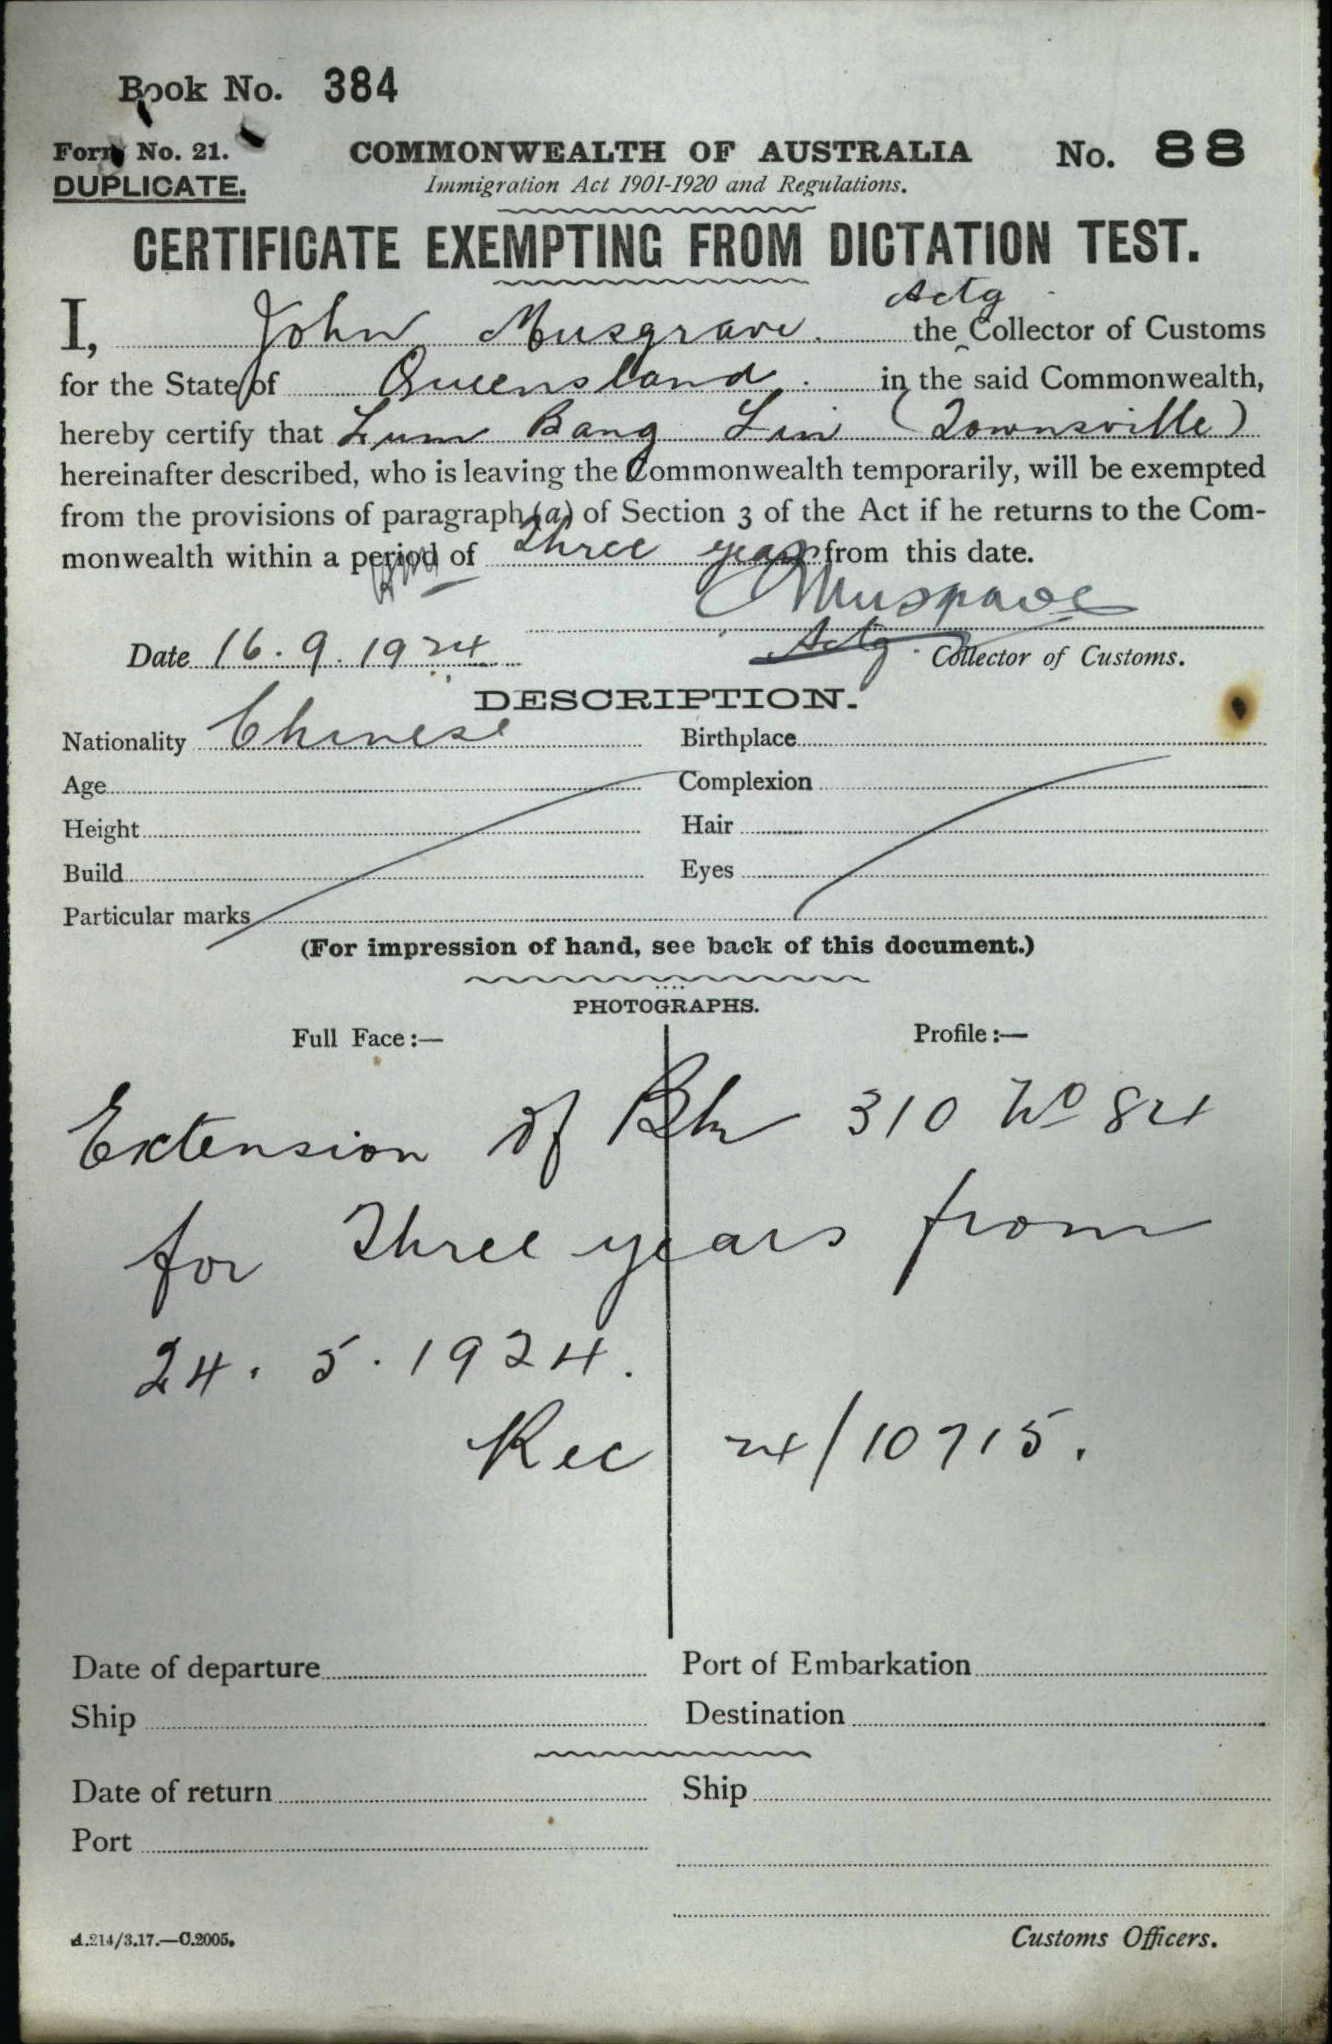 Book No. 384
Form No. 21.
DUPLICATE.
COMMONWEALTH OF AUSTRALIA
No. 88
Immigration Act 1901-1920 and Regulations.
CERTIFICATE EXEMPTING FROM DICTATION TEST.
Actg
I, John Musgrave. the Collector of Customs
for the State of Queensland. in the said Commonwealth,
hereby certify that Lum Bang Lin (Townsville)
hereinafter described, who is leaving the Commonwealth temporarily, will be exempted
from the provisions of paragraph (a) of Section 3 of the Act if he returns to the Com-
monwealth within a period of Three years from this date.
Musgrave
Date 16.9.1924
Actg. Collector of Customs.
DESCRIPTION.
Nationality Chinese Birthplace
Age Complexion
Height Hair
Build Eyes
Particular marks
(For impression of hand, see back of this document.)
PHOTOGRAPHS.
Full Face:— Profile:—
Extension of Bk 310 No 84
for Three years from
24.5.1924.
Rec 24/10715.
Date of departure Port of Embarkation
Ship Destination
Date of return Ship
Port
A.214/3.17.—C.2005.
Customs Officers.